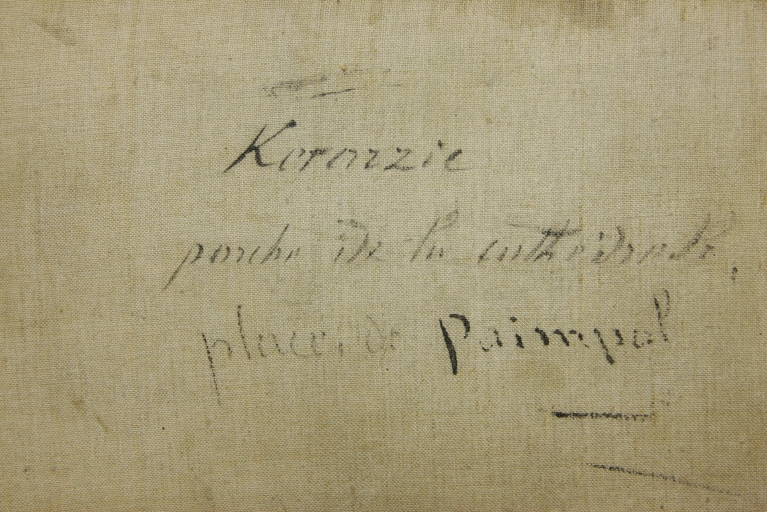 Keranzic
porche de la cathédrale,
place de Paimpol